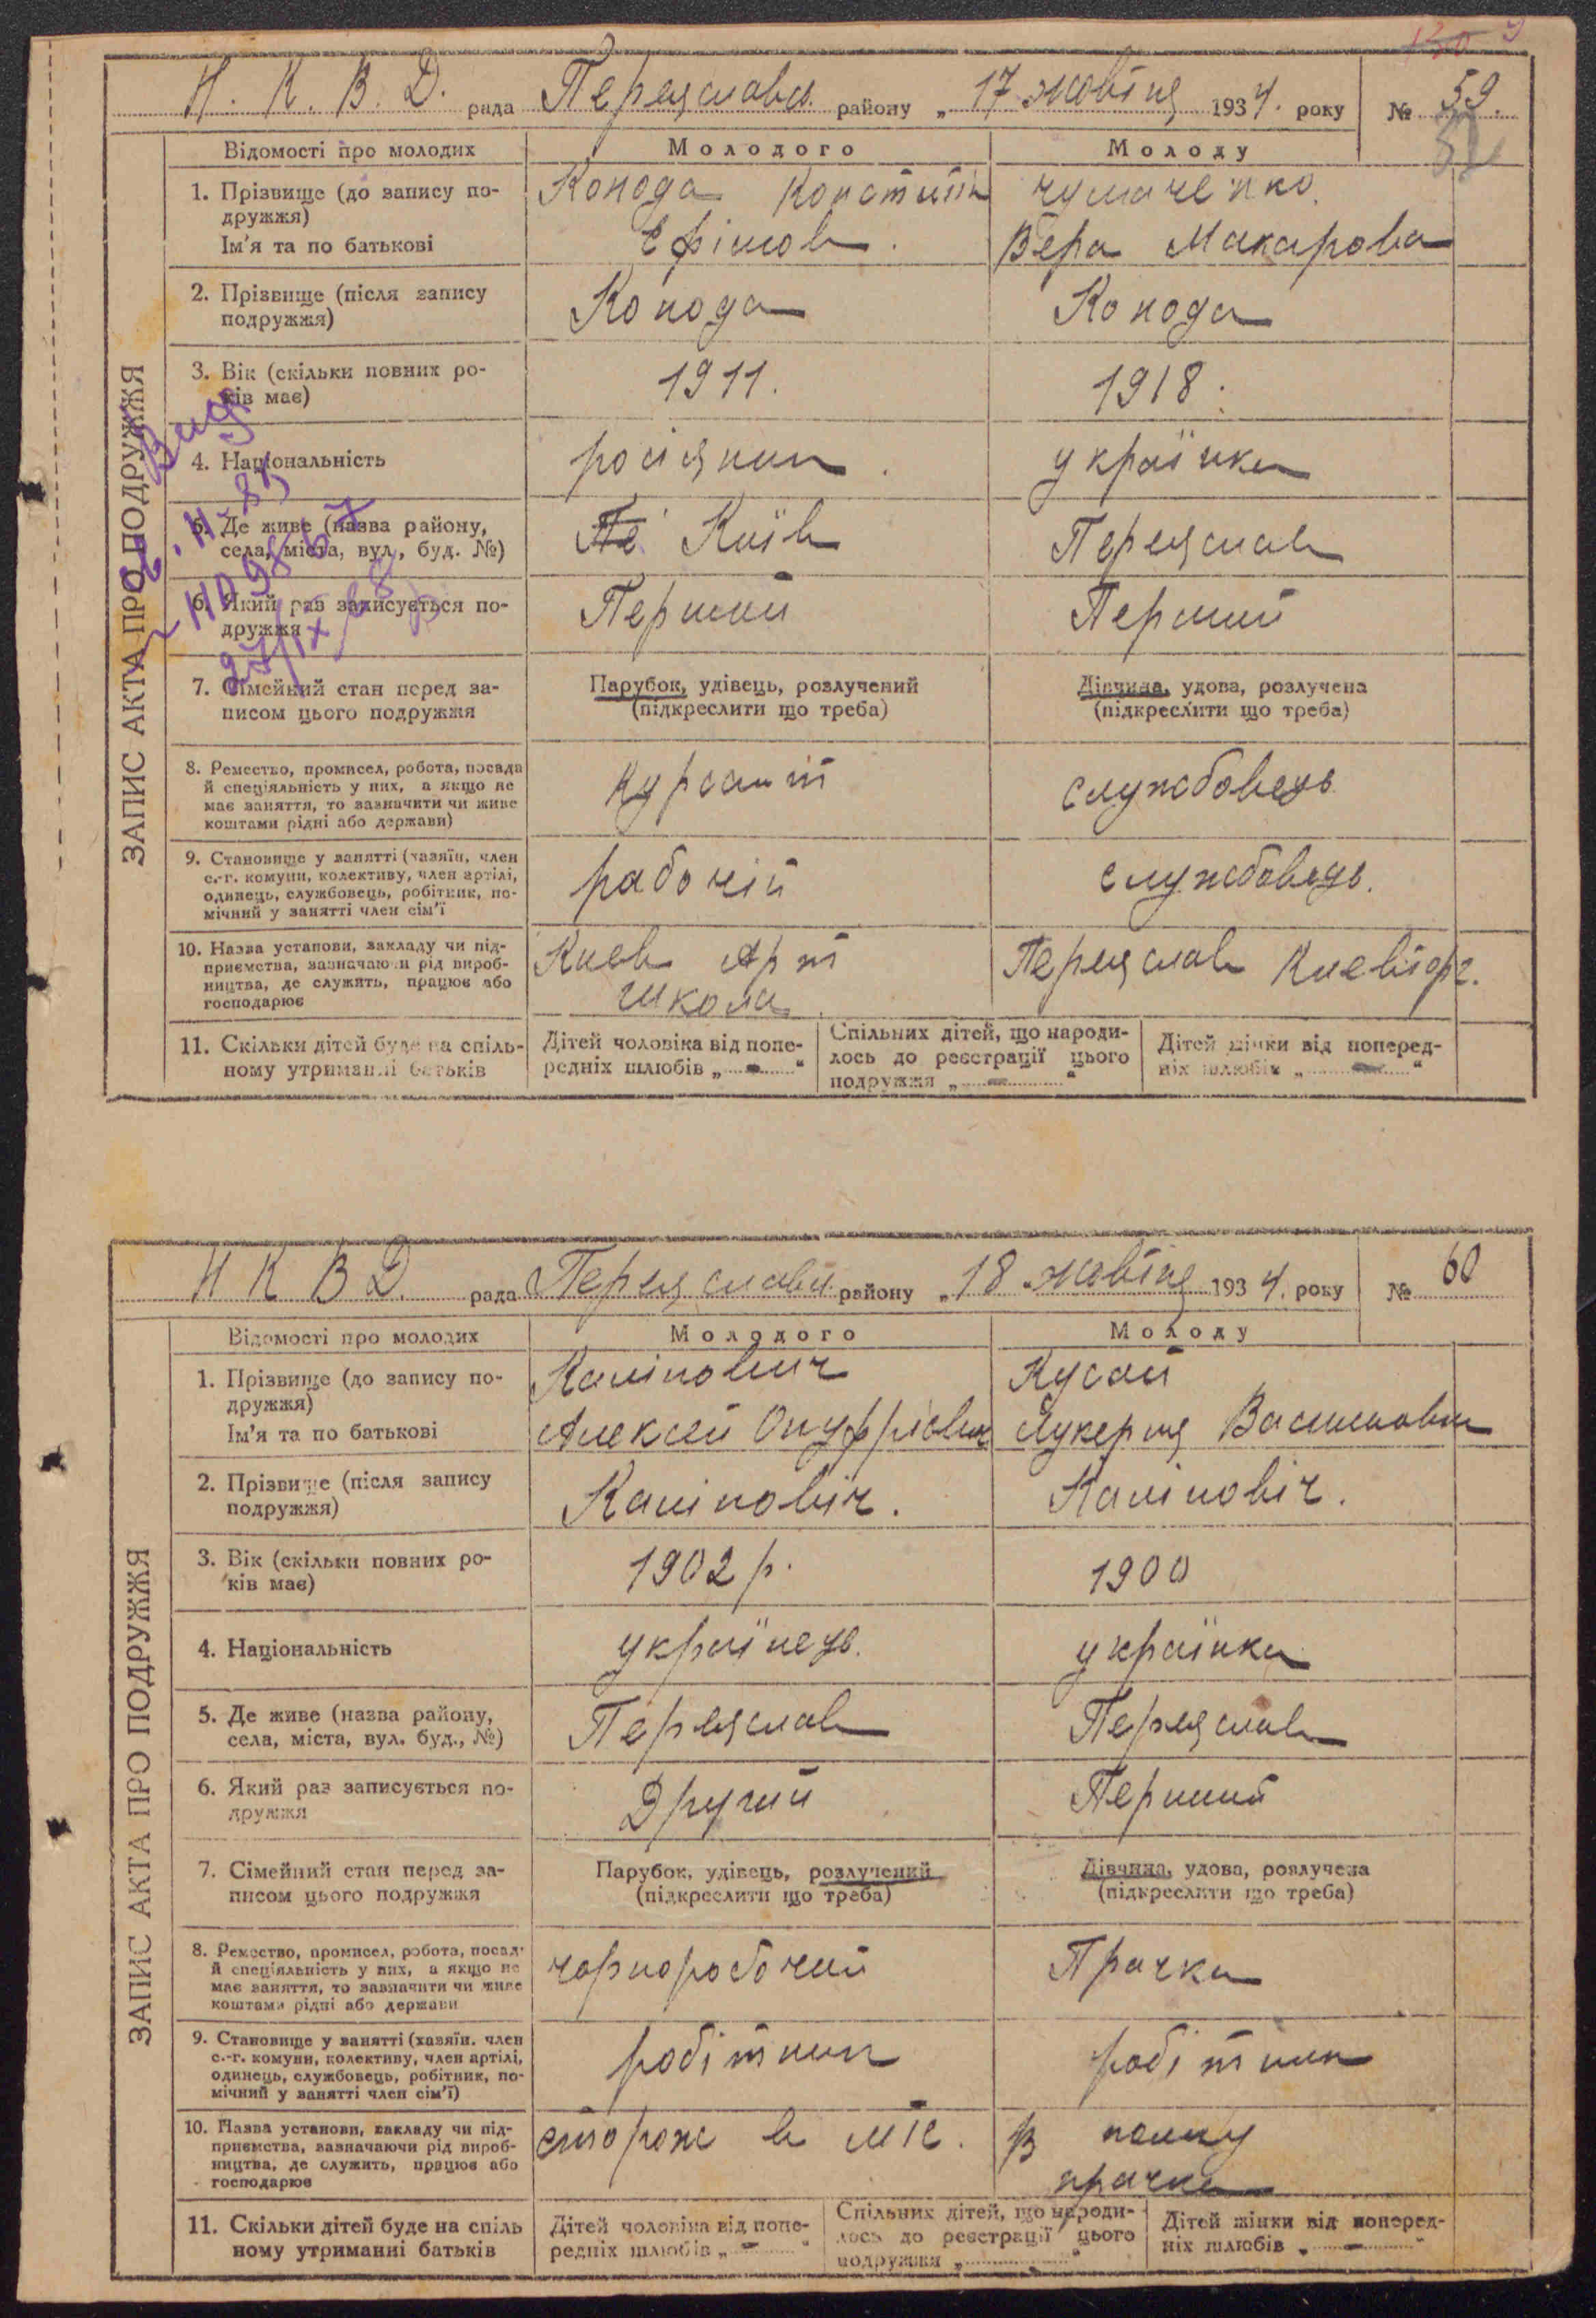 Н. К. В. Д. рада Переяславськ району „17 жовтня 1934. року № 59.
Відомості про молодих Молодого Молоду
1. Прізвище (до запису по- Конода Констинт чумаченко.
дружжя)
Ім'я та по батькові Ефімов. Вера Макарова
2. Прізвище (після запису Конода Конода
подружжя)
3. Вік (скільки повних ро- 1911. 1918.
ків має)
4. Національність росіянин. українка
5. Де живе (назва району, Київ Переяслав
села, міста, вул., буд. №)
6. Який раз записується по- Перший Перший
дружжя
7. Сімейний стан перед за- Парубок, удівець, розлучений Дівчина, удова, розлучена
писом цього подружжя (підкреслити що треба) (підкреслити що треба)
8. Ремество, промисел, робота, посада курсант службовець
й спеціяльність у них, а якщо не
має заняття, то зазначити чи живе
коштами рідні або держави)
9. Становище у занятті (хазяїн, член рабочій службовець.
с.-г. комуни, колективу, член артілі,
одинець, службовець, робітник, по-
мічний у занятті член сім'ї
10. Назва установи, закладу чи під- Киев Арт Переяслав Киевторг.
приємства, зазначаючи рід вироб- школа.
ництва, де служить, працює або
господарює
11. Скільки дітей буде на спіль- Дітей чоловіка від попе- Спільних дітей, що народи- Дітей жінки від поперед-
ному утриманні батьків редніх шлюбів „ - “ лось до реєстрації цього ніх шлюбів „ - “
подружжя „ - “
ЗАПИС АКТА ПРО ПОДРУЖЖЯ
Н К В Д. рада Переяславськ району „18 жовтня 1934. року № 60
Відомості про молодих Молодого Молоду
1. Прізвище (до запису по- Калінович Кусай
дружжя)
Ім'я та по батькові Алексей Онуфріевич Лукерия Васильовна
2. Прізвище (після запису Калиновіч. Калиновіч.
подружжя)
3. Вік (скільки повних ро- 1902 р. 1900
ків має)
4. Національність українець. українка
5. Де живе (назва району, Переяслав Переяслав
села, міста, вул. буд., №)
6. Який раз записується по- Другий Перший
дружжя
7. Сімейний стан перед за- Парубок, удівець, розлучений Дівчина, удова, розлучена
писом цього подружжя (підкреслити що треба) (підкреслити що треба)
8. Ремество, промисел, робота, посад чорноробочий Прачка
й спеціяльність у них, а якщо не
має заняття, то зазначити чи живе
коштами рідні або держави
9. Становище у занятті (хазяїн. член робітник робітник
с.-г. комуни, колективу, член артілі,
одинець, службовець, робітник, по-
мічний у занятті член сім'ї)
10. Назва установи, закладу чи під- сторож в мтс. В полку
приємства, зазначаючи рід вироб- прачка
ництва, де служить, працює або
господарює
11. Скільки дітей буде на спіль Дітей чоловіка від попе- Спільних дітей, що народи- Дітей жінки від поперед-
ному утриманні батьків редніх шлюбів „ - “ лось до реєстрації цього ніх шлюбів „ - “
подружжя „ “
ЗАПИС АКТА ПРО ПОДРУЖЖЯ